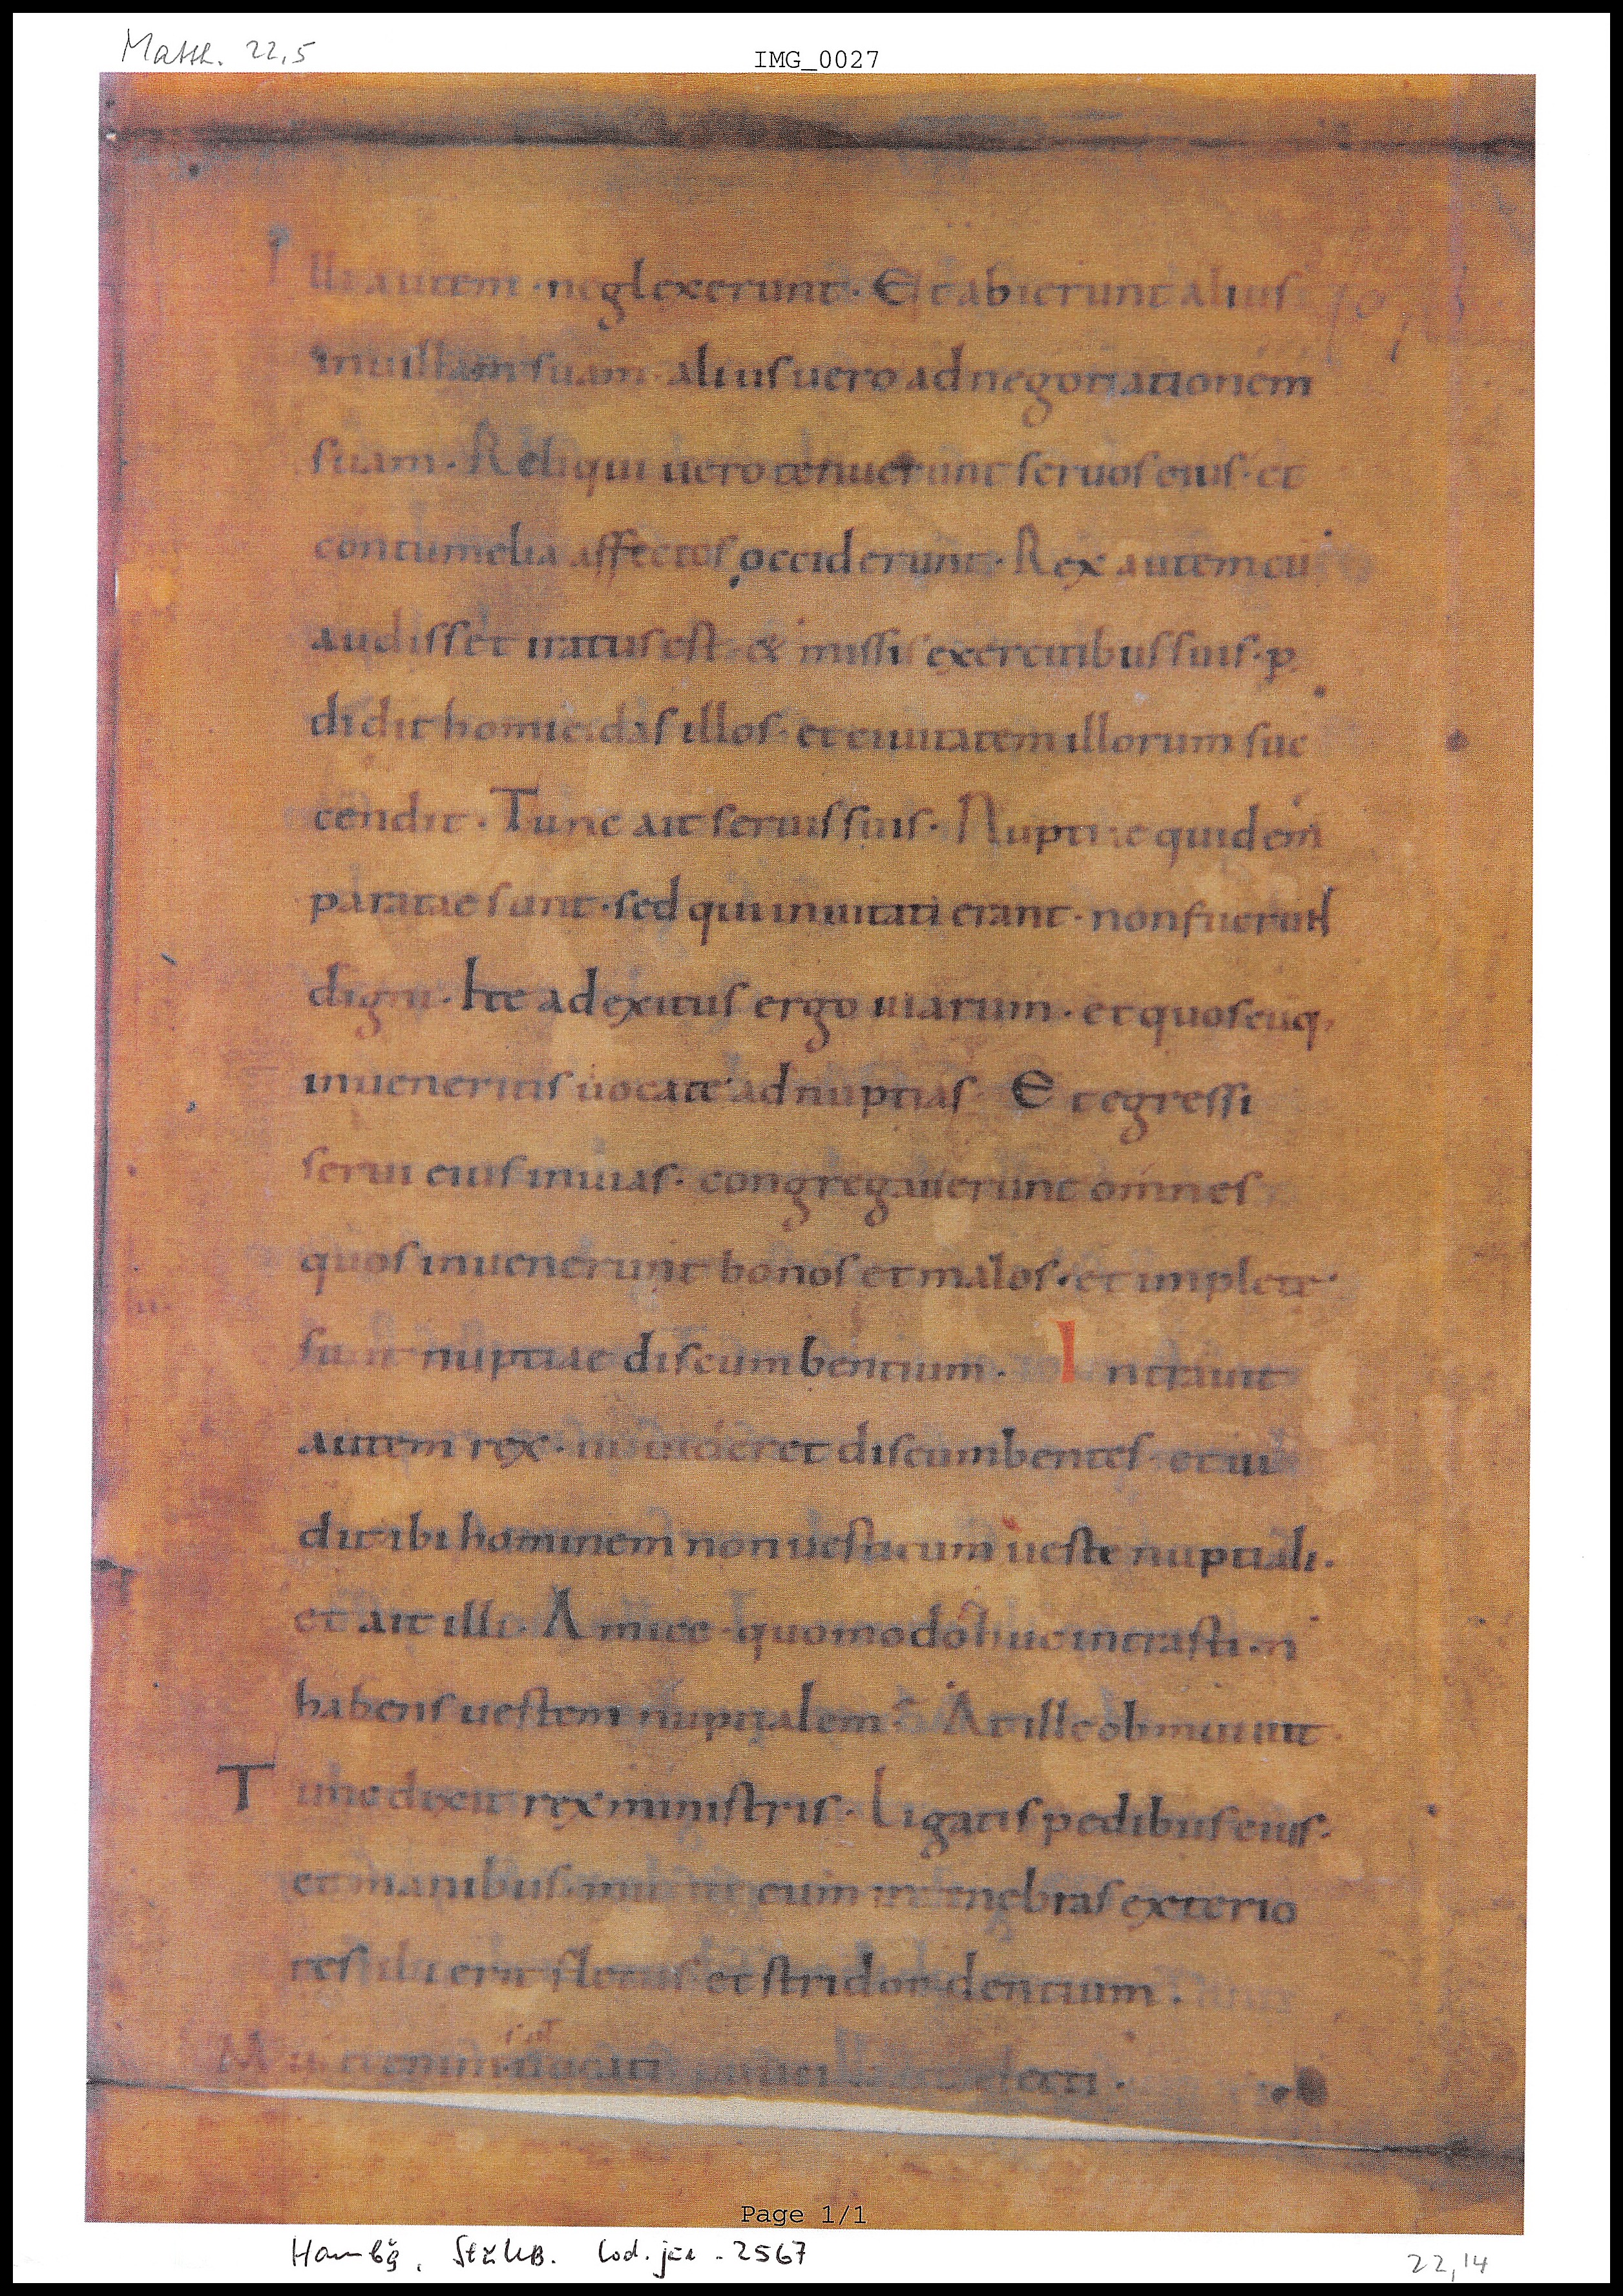 Matth. 22,5
IMG_0027
Illi autem · neglexerunt · Et abierunt alius
in uillam suam · alius uero ad negotiationem
suam · Reliqui uero tenuerunt seruos eius · et
contumelia affectos occiderunt · Rex autem cū
audisset iratus est · & missis exercitibus suis · p
didit homicidas illos · et ciuitatem illorum suc
cendit · Tunc ait seruis suis · Nuptiae quidem
paratae sunt · sed qui inuitati erant · non fuerunt
digni · Ite ad exitus ergo uiarum · et quoscūq,
inueneritis uocate ad nuptias · Et egressi
serui eius in uias · congregauerunt omnes
quos inuenerunt bonos et malos · et implete
sunt nuptiae discumbentium · Intrauit
autem rex · ut uideret discumbentes · et ui
dit ibi hominem non uestitum ueste nuptiali ·
et ait illi · Amice · quomodo huc intrasti · n
habens uestem nuptialem · At ille obmutuit ·
Tunc dixit rex ministris · Ligatis pedibus eius ·
et manibus · mittite eum in tenebras exterio
res · ibi erit fletus et stridor dentium ·
Multi enim uocati pauci electi ·
Page 1/1
Hambg, StUB. Cod. jur. 2567
22,14